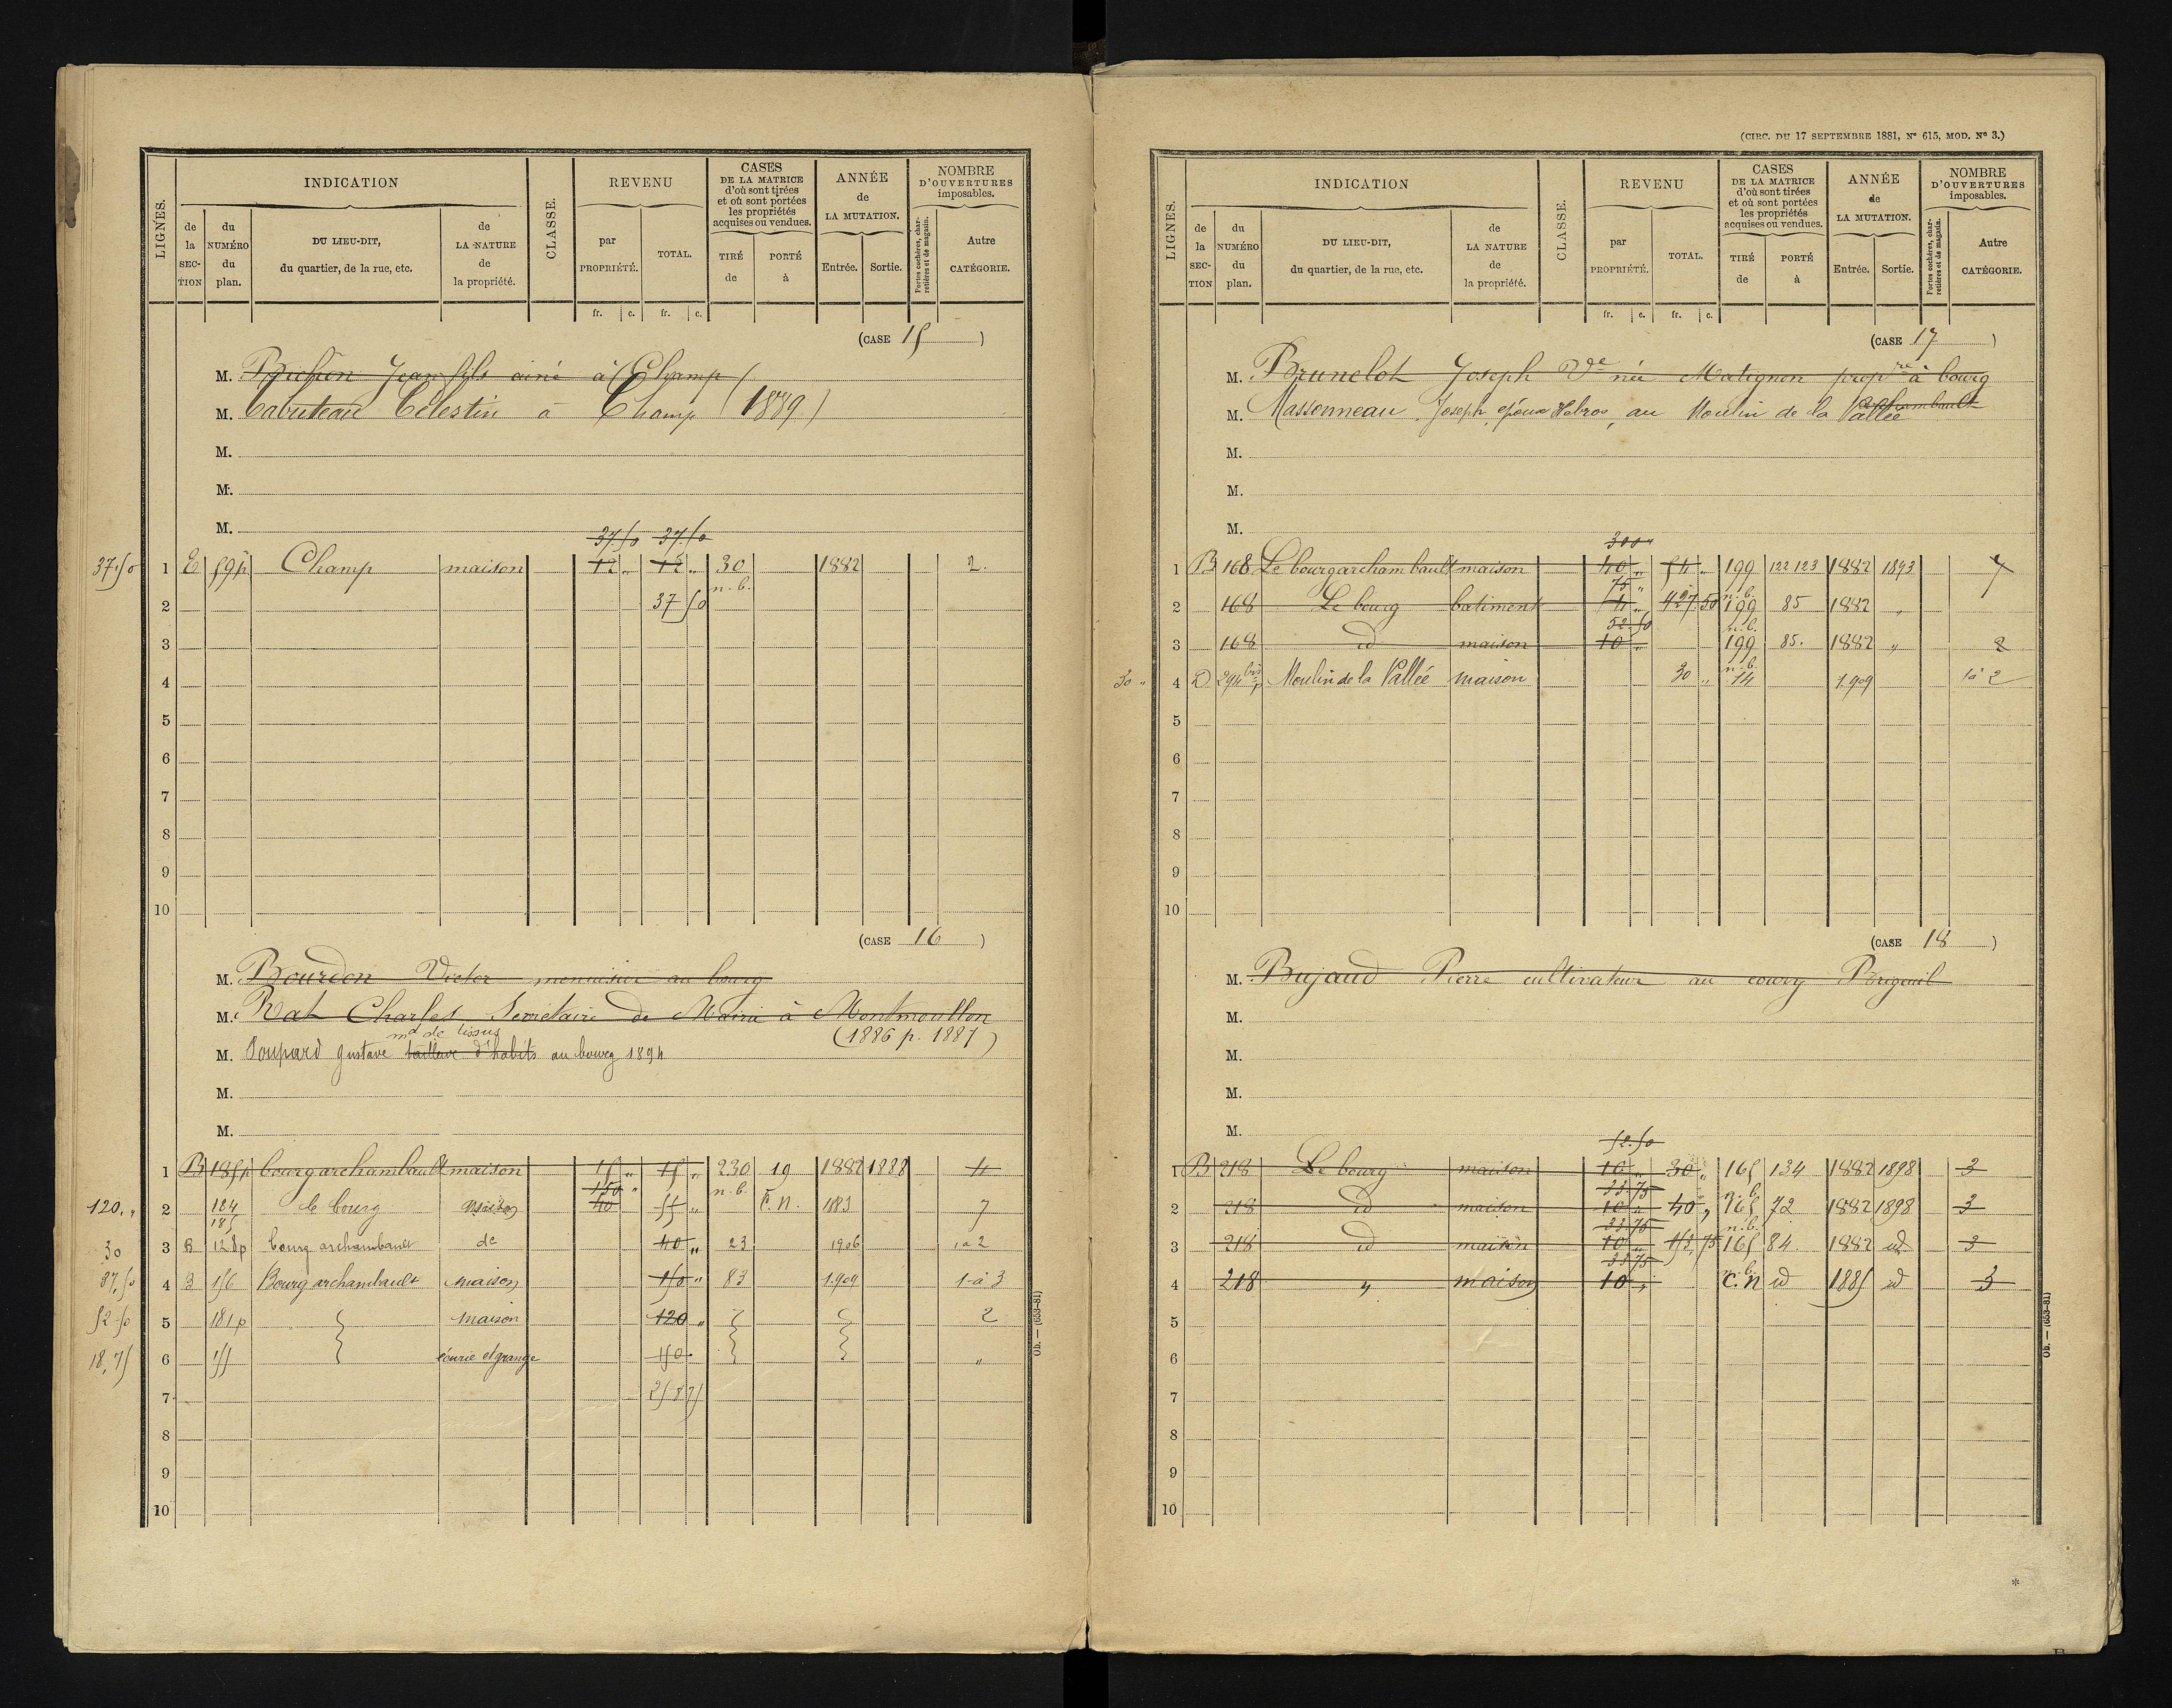 LIGNES.
INDICATION
CLASSE.
REVENU
CASES
DE LA MATRICE
d'où sont tirées
et où sont portées
les propriétés
acquises ou vendues.
ANNÉE
de
LA MUTATION.
NOMBRE
D'OUVERTURES
imposables.
de la SECTION
du NUMÉRO du plan.
DU LIEU-DIT,
du quartier, de la rue, etc.
de LA NATURE de la propriété.
par PROPRIÉTÉ.
TOTAL.
TIRÉ de
PORTÉ à
Entrée.
Sortie.
Portes cochères, charretières et de magasin.
Autre CATÉGORIE.
fr. c. fr. c.
(CASE 15)
M. Jean fils ainé à Champ
M. Célestin à Champ (1889)
M.
M.
M.
37.50 37.50
37.50 1 E 59p Champ maison 12 " 12 " 30 1882 2.
n.b.
2 37 50
3
4
5
6
7
8
9
10
(CASE 16)
M. Bourdon Victor menuisier au bourg
M. Rat Charles Secrétaire de Mairie à Montmorillon
(1886 p. 1887)
md de tissus
M. Soupard Gustave tailleur d'habits au bourg 1894
M.
M.
1 B 185p bourgarchambault maison 15 " 15 " 230 19 1882 1888 4
150 " n.b.
120. " 2 124 le bourg maison 40 55 " F.N. 1883 7
185
30 3 B 128p bourg archambault de 40 " 23 1906 1 à 2
37,50 4 B 156 Bourg archambault maison 150 " 83 1909 1 à 3
52.50 5 181p maison 120 " 2
18,75 6 155 écurie et grange 150 "
7 258 75
8
9
10
Ob. — (653-81)
(CIRC. DU 17 SEPTEMBRE 1881, N° 615, MOD. N° 3.)
LIGNES.
INDICATION
CLASSE.
REVENU
CASES
DE LA MATRICE
d'où sont tirées
et où sont portées
les propriétés
acquises ou vendues.
ANNÉE
de
LA MUTATION.
NOMBRE
D'OUVERTURES
imposables.
de la SECTION
du NUMÉRO du plan.
DU LIEU-DIT,
du quartier, de la rue, etc.
de LA NATURE de la propriété.
par PROPRIÉTÉ.
TOTAL.
TIRÉ de
PORTÉ à
Entrée.
Sortie.
Portes cochères, charretières et de magasin.
Autre CATÉGORIE.
fr. c. fr. c.
(CASE 17)
M. Brunelot Joseph Vve née Matignon propre à bourg
archambault
M. Massonneau Joseph, époux Hebras, au Moulin de la Vallée
M.
M.
M.
300 "
1 B 168 Le bourgarchambault maison 40 " 54 " 199 122 123 1882 1893 7
75 " n.b.
2 168 Le bourg batiment 4 " 427.50 199 85 1882 "
52.50 n.b.
3 168 id maison 10 " 199 85. 1882 " 2
n.b.
30 " 4 D 294 bis p Moulin de la Vallée maison 30 " 14 1909 1 à 2
5
6
7
8
9
10
(CASE 18)
M. Bujaud Pierre cultivateur au Brigeuil
M.
M.
M.
M.
52.50
1 B 218 Le bourg maison 10 " 30 " 165 134 1882 1898 3
33.75 n.b.
2 218 id maison 10 " 40 " 165 72 1882 1898 3
33.75 n.b.
3 218 id maison 10 " 153,75 165 84 1882 id 3
33.75 n.b.
4 218 " maison 10 " C.N id 1885 id 3
5
6
7
8
9
10
Ob. — (653-81)
*